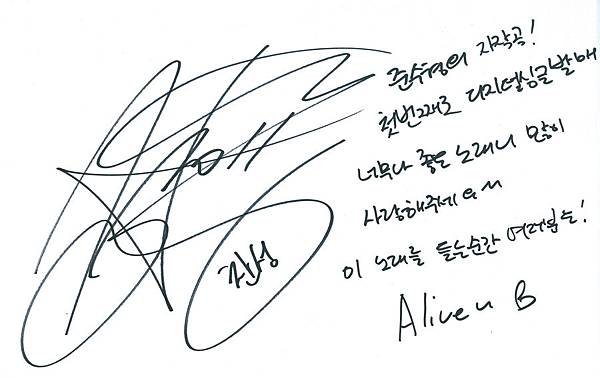 준수형의 자작곡!
첫번째로 디지털싱글발매
너무나 좋은 노래니 많이
사랑해주세요~
이 노래를 듣는순간 여러분은!
Alive u B
찬성